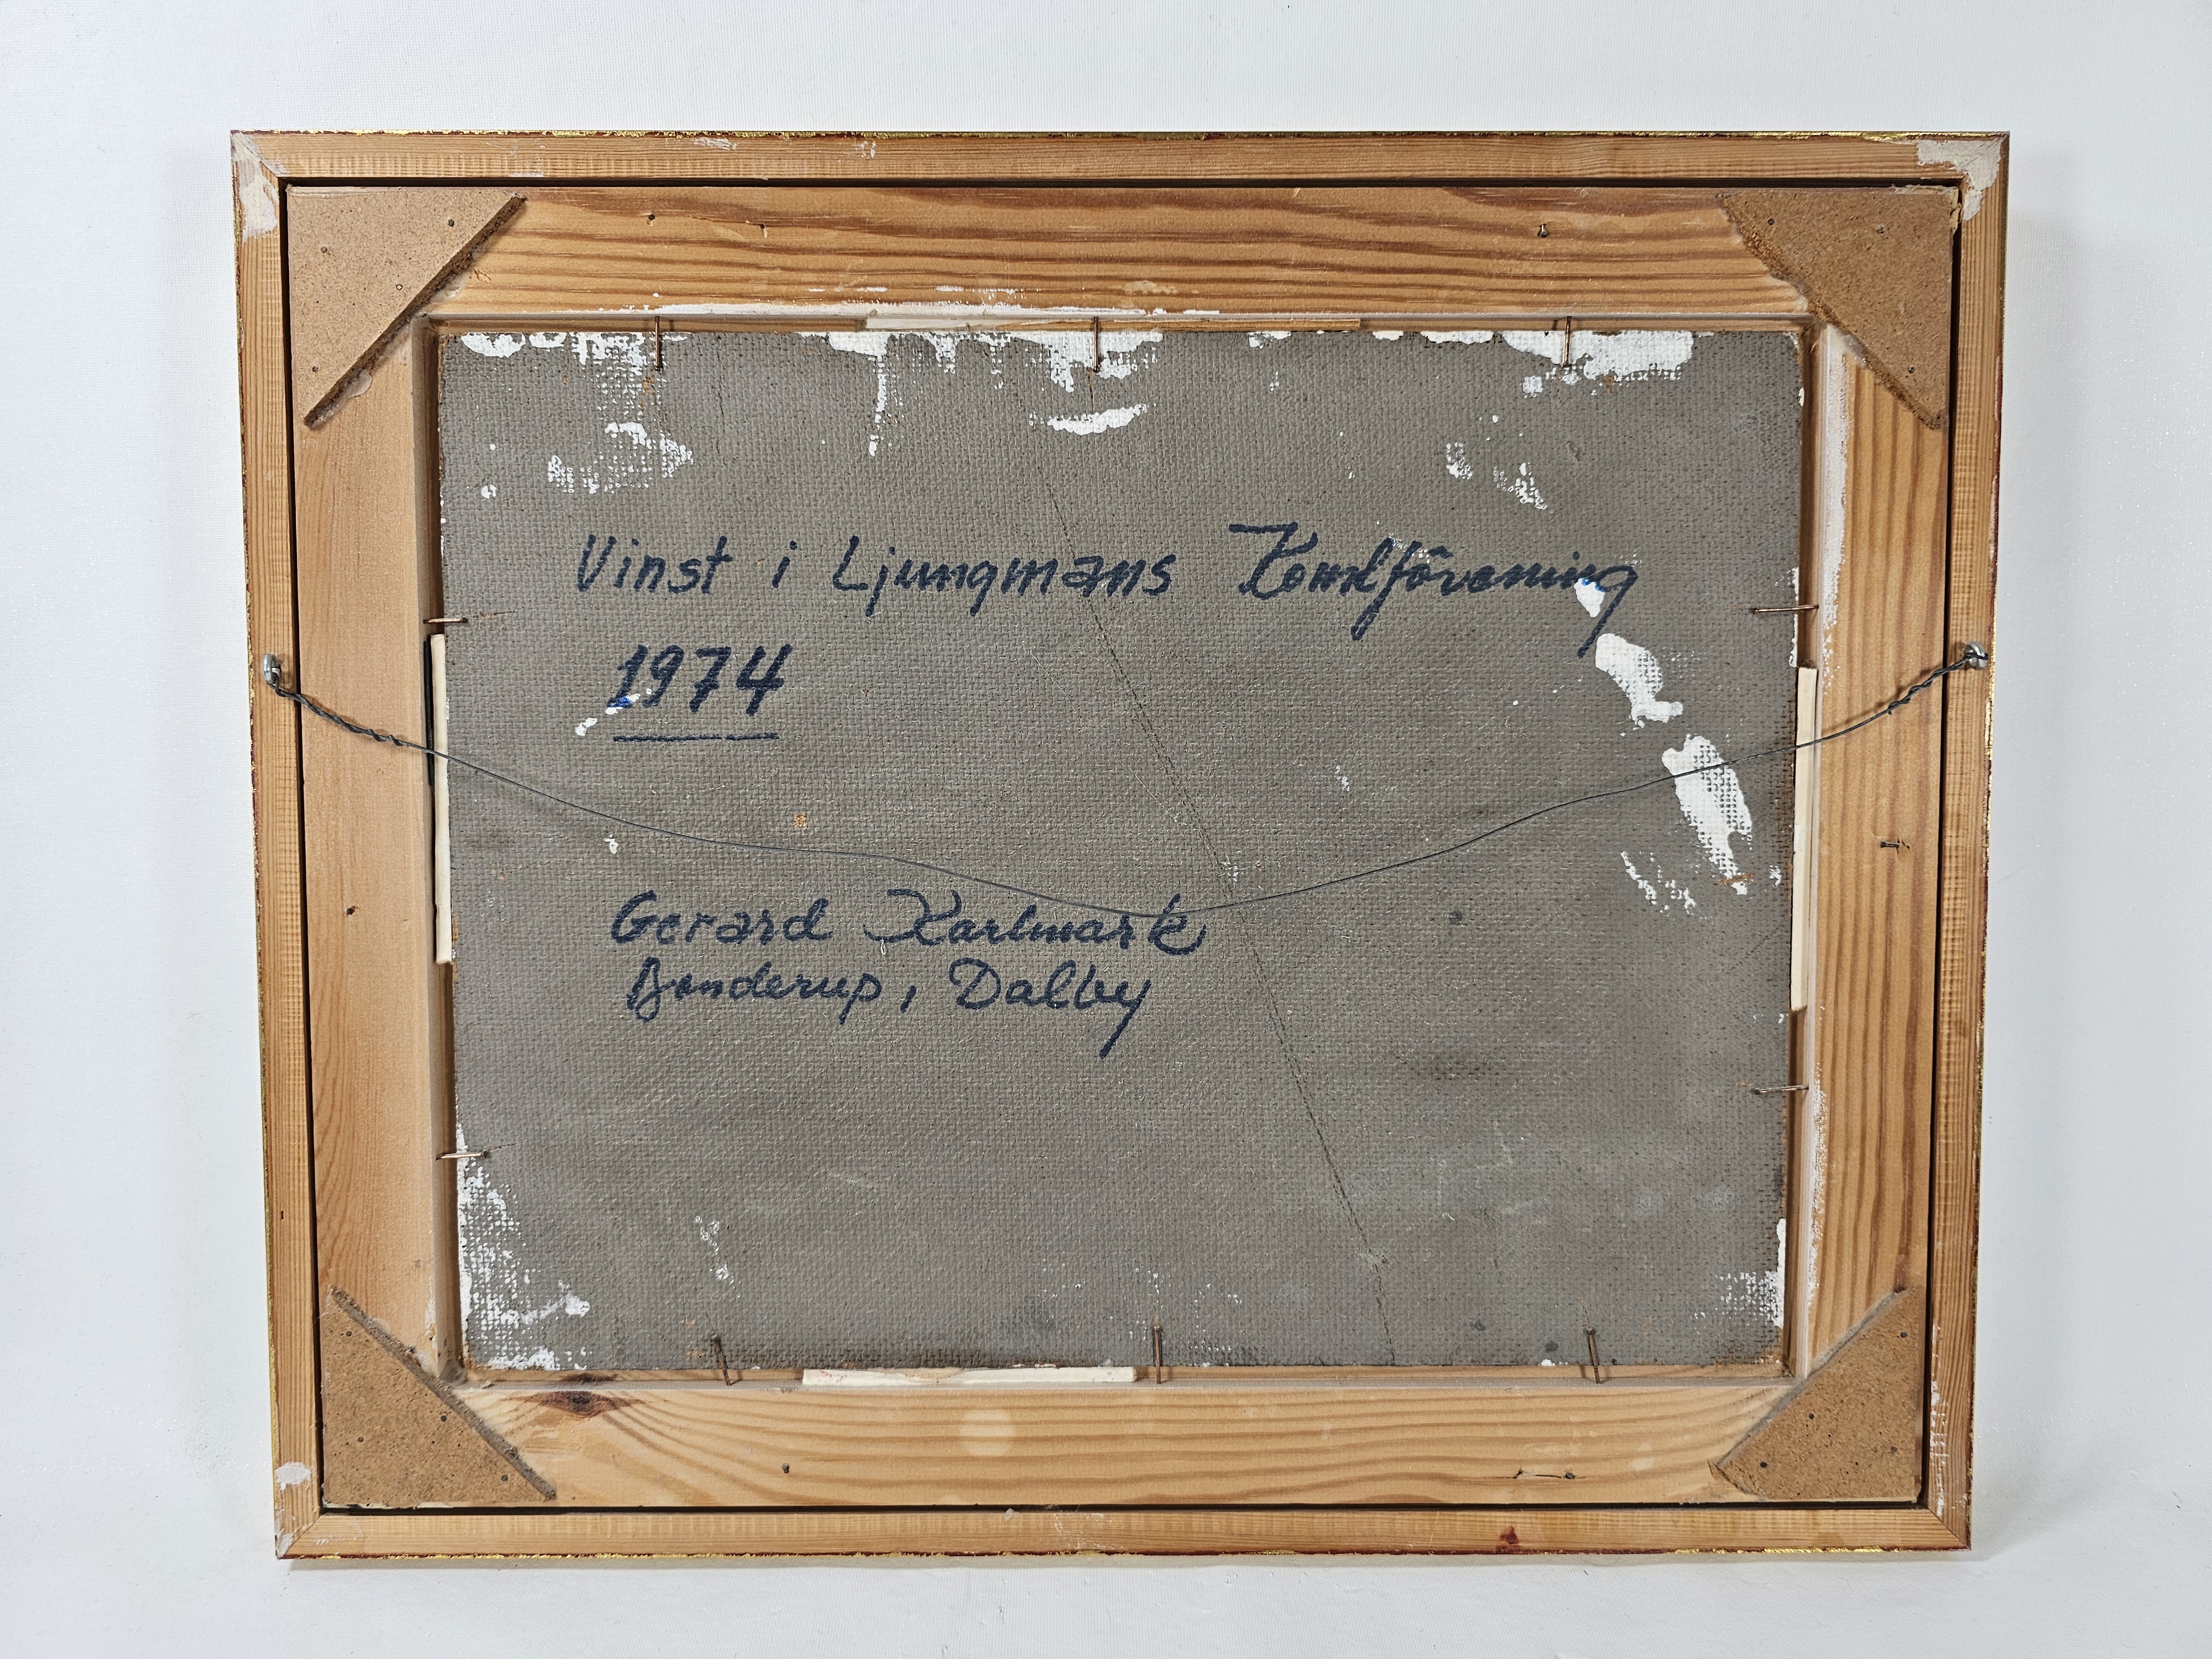 Vinst i Ljungmans Konstförening
1974
Gerard Karlmark
Bonderup, Dalby